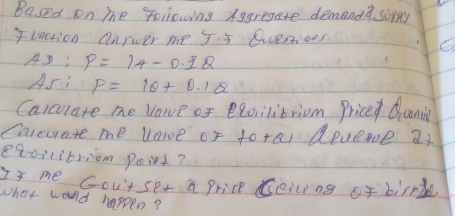 Based on the Following Aggregate demand & supply
Function answer the F.F Questions
AD : P = 14 - 0.3Q
AS : P = 10 + 0.1Q
Calculate the Value of Equilibrium Price &
Calculate the Value of total Revenue at
Equilibrium Point ?
If the Gov't set a Price Ceiling of birr
what would happen ?